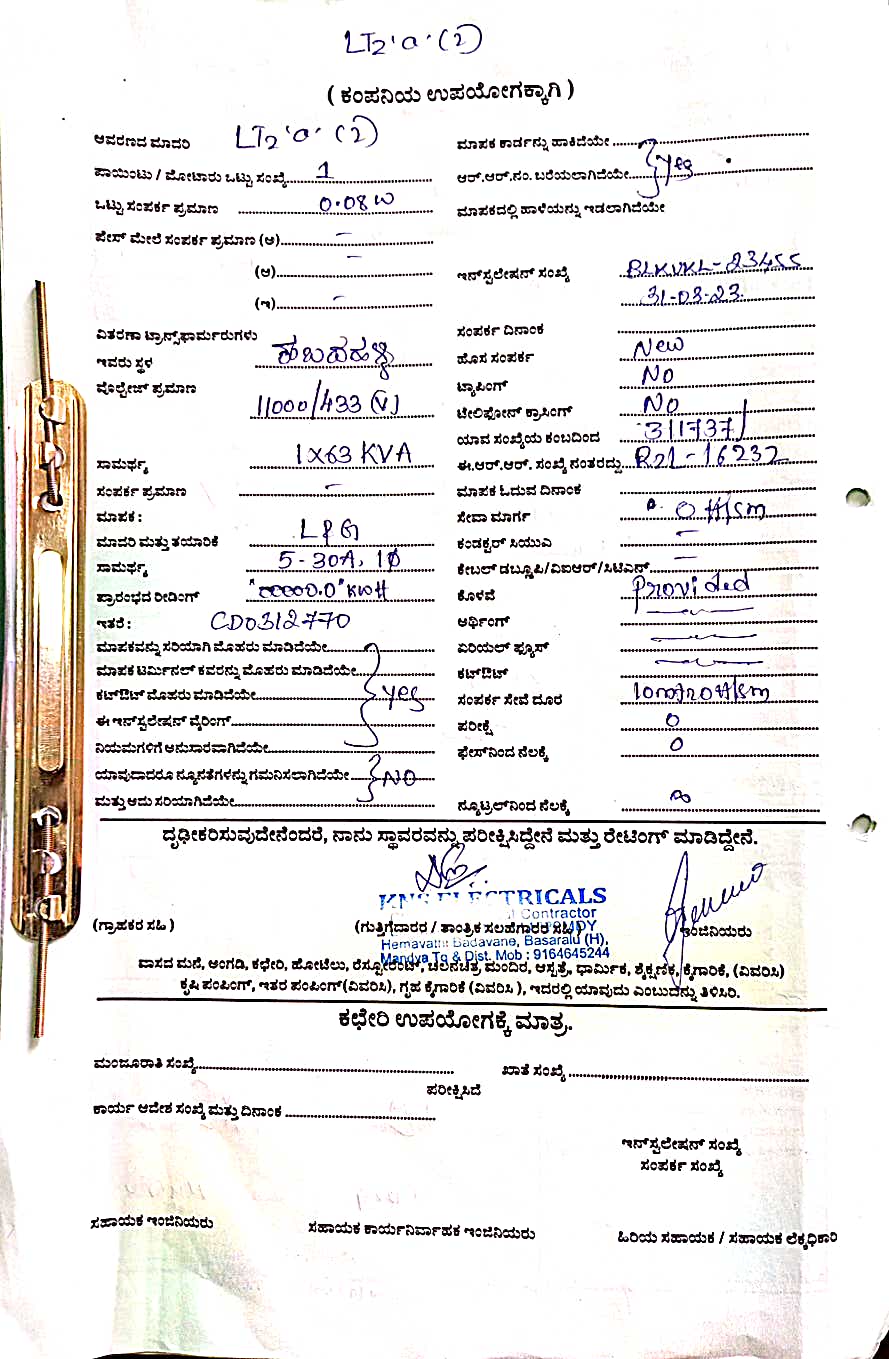 LT2 'a' (2)
( ಕಂಪನಿಯ ಉಪಯೋಗಕ್ಕಾಗಿ )
ಆವರಣದ ಮಾದರಿ LT2 'a' (2)
ಪಾಯಿಂಟು / ಮೋಟಾರು ಒಟ್ಟು ಸಂಖ್ಯೆ 1
ಒಟ್ಟು ಸಂಪರ್ಕ ಪ್ರಮಾಣ 0.08 W
ಫೇಸ್ ಮೇಲೆ ಸಂಪರ್ಕ ಪ್ರಮಾಣ (ಅ) –
(ಆ) –
(ಇ) –
ವಿತರಣಾ ಟ್ರಾನ್ಸ್‌ಫಾರ್ಮರುಗಳು
ಇವರು ಸ್ಥಳ
ವೋಲ್ಟೇಜ್ ಪ್ರಮಾಣ
11000/433 (V)
ಸಾಮರ್ಥ್ಯ 1X63 KVA
ಸಂಪರ್ಕ ಪ್ರಮಾಣ –
ಮಾಪಕ :
ಮಾದರಿ ಮತ್ತು ತಯಾರಿಕೆ L&G
ಸಾಮರ್ಥ್ಯ 5-30A, 1Ø
ಪ್ರಾರಂಭದ ರೀಡಿಂಗ್ "00000.0" KWH
ಇತರೆ : CD0312770
ಮಾಪಕವನ್ನು ಸರಿಯಾಗಿ ಮೊಹರು ಮಾಡಿದೆಯೇ
ಮಾಪಕ ಟರ್ಮಿನಲ್ ಕವರನ್ನು ಮೊಹರು ಮಾಡಿದೆಯೇ
ಕಟ್‌ಔಟ್ ಮೊಹರು ಮಾಡಿದೆಯೇ yes
ಈ ಇನ್‌ಸ್ಟಲೇಷನ್ ವೈರಿಂಗ್
ನಿಯಮಗಳಿಗೆ ಅನುಸಾರವಾಗಿದೆಯೇ
ಯಾವುದಾದರೂ ನ್ಯೂನತೆಗಳನ್ನು ಗಮನಿಸಲಾಗಿದೆಯೇ NO
ಮತ್ತು ಅದು ಸರಿಯಾಗಿದೆಯೇ
ಮಾಪಕ ಕಾರ್ಡನ್ನು ಹಾಕಿದೆಯೇ
ಆರ್.ಆರ್.ನಂ. ಬರೆಯಲಾಗಿದೆಯೇ yes
ಮಾಪಕದಲ್ಲಿ ಹಾಳೆಯನ್ನು ಇಡಲಾಗಿದೆಯೇ
ಇನ್‌ಸ್ಟಲೇಷನ್ ಸಂಖ್ಯೆ BLKVKL-23455
31-03-23
ಸಂಪರ್ಕ ದಿನಾಂಕ
ಹೊಸ ಸಂಪರ್ಕ New
ಟ್ಯಾಪಿಂಗ್ NO
ಟೇಲಿಫೋನ್ ಕ್ರಾಸಿಂಗ್ NO
ಯಾವ ಸಂಖ್ಯೆಯ ಕಂಬದಿಂದ 311737/
ಈ.ಆರ್.ಆರ್. ಸಂಖ್ಯೆ ನಂತರದ್ದು R21-16232
ಮಾಪಕ ಓದುವ ದಿನಾಂಕ
ಸೇವಾ ಮಾರ್ಗ
ಕಂಡಕ್ಟರ್ ಸಿಯುವಿ –
ಕೇಬಲ್ ಡಬ್ಲ್ಯೂಪಿ/ವಿಐಆರ್/ಸಿಟಿಎಸ್ –
ಕೊಳವೆ Provided
ಆರ್ಥಿಂಗ್
ಏರಿಯಲ್ ಫ್ಯೂಸ್
ಕಟ್‌ಔಟ್
ಸಂಪರ್ಕ ಸೇವೆ ದೂರ
ಪರೀಕ್ಷೆ 0
ಫೇಸ್‌ನಿಂದ ನೆಲಕ್ಕೆ 0
ನ್ಯೂಟ್ರಲ್‌ನಿಂದ ನೆಲಕ್ಕೆ
ದೃಢೀಕರಿಸುವುದೇನೆಂದರೆ, ನಾನು ಸ್ಥಾವರವನ್ನು ಪರೀಕ್ಷಿಸಿದ್ದೇನೆ ಮತ್ತು ರೇಟಿಂಗ್ ಮಾಡಿದ್ದೇನೆ.
KNS ELECTRICALS
Contractor
(ಗ್ರಾಹಕರ ಸಹಿ ) (ಗುತ್ತಿಗೆದಾರರ / ತಾಂತ್ರಿಕ ಸಲಹೆಗಾರರ ಸಹಿ) ಇಂಜಿನಿಯರು
Hemavathi Badavane, Basaralu (H),
Mandya Tq & Dist. Mob : 9164645244
ವಾಸದ ಮನೆ, ಅಂಗಡಿ, ಕಛೇರಿ, ಹೋಟೆಲು, ರೆಸ್ಟೋರೆಂಟ್, ಚಲನಚಿತ್ರ, ಮಂದಿರ, ಆಸ್ಪತ್ರೆ, ಧಾರ್ಮಿಕ, ಶೈಕ್ಷಣಿಕ, ಕೈಗಾರಿಕೆ, (ವಿವರಿಸಿ)
ಕೃಷಿ ಪಂಪಿಂಗ್, ಇತರ ಪಂಪಿಂಗ್ (ವಿವರಿಸಿ), ಗೃಹ ಕೈಗಾರಿಕೆ (ವಿವರಿಸಿ ), ಇದರಲ್ಲಿ ಯಾವುದು ಎಂಬುದನ್ನು ತಿಳಿಸಿರಿ.
ಕಛೇರಿ ಉಪಯೋಗಕ್ಕೆ ಮಾತ್ರ.
ಮಂಜೂರಾತಿ ಸಂಖ್ಯೆ ಖಾತೆ ಸಂಖ್ಯೆ
ಪರೀಕ್ಷಿಸಿದೆ
ಕಾರ್ಯ ಆದೇಶ ಸಂಖ್ಯೆ ಮತ್ತು ದಿನಾಂಕ
ಇನ್‌ಸ್ಟಲೇಷನ್ ಸಂಖ್ಯೆ
ಸಂಪರ್ಕ ಸಂಖ್ಯೆ
ಸಹಾಯಕ ಇಂಜಿನಿಯರು ಸಹಾಯಕ ಕಾರ್ಯನಿರ್ವಾಹಕ ಇಂಜಿನಿಯರು ಹಿರಿಯ ಸಹಾಯಕ / ಸಹಾಯಕ ಲೆಕ್ಕಧಿಕಾರಿ